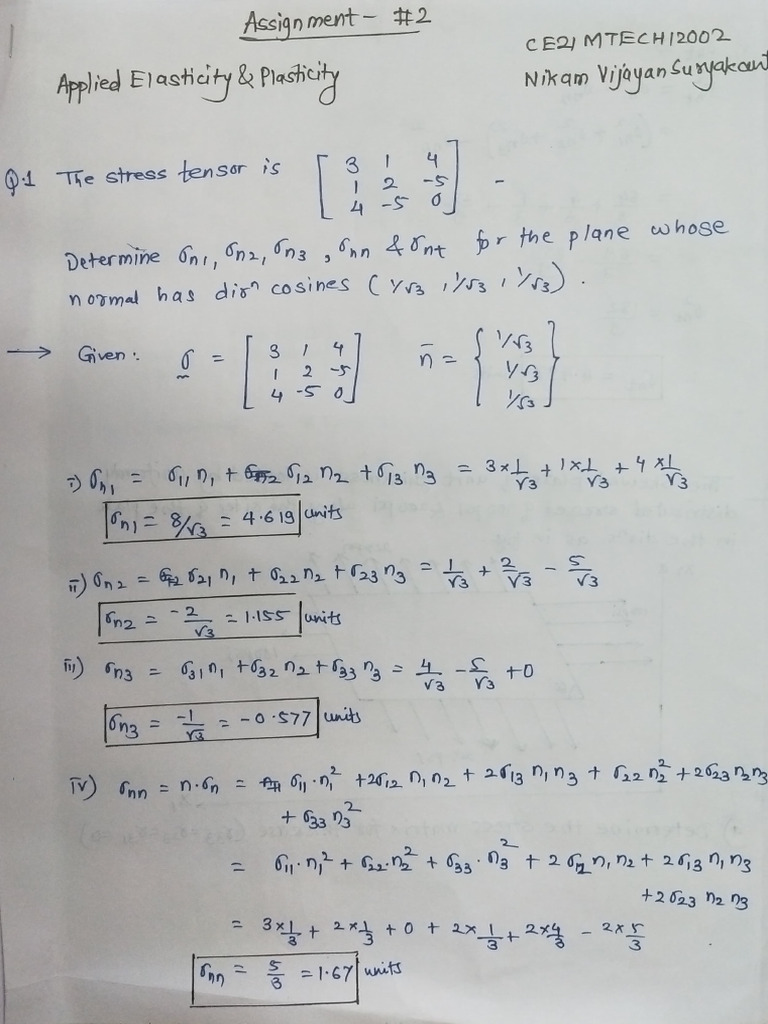 Assignment - #2
CE21MTECH12002
Applied Elasticity & Plasticity
Nikam Vijayan Suryakant
Q.1 The stress tensor is [3 1 4
1 2 -5
4 -5 0] -
Determine σn1, σn2, σn3, σnn & σnt for the plane whose
normal has dirⁿ cosines (1/√3, 1/√3, 1/√3).
→ Given: σ = [3 1 4
1 2 -5
4 -5 0] n̄ = {1/√3
1/√3
1/√3}
i) σn1 = σ11 n1 + σ12 n2 + σ13 n3 = 3×1/√3 + 1×1/√3 + 4×1/√3
σn1 = 8/√3 = 4.619 units
ii) σn2 = σ21 n1 + σ22 n2 + σ23 n3 = 1/√3 + 2/√3 - 5/√3
σn2 = -2/√3 = 1.155 units
iii) σn3 = σ31 n1 + σ32 n2 + σ33 n3 = 4/√3 - 5/√3 + 0
σn3 = -1/√3 = -0.577 units
iv) σnn = n·σn = σ11·n1² + 2σ12 n1 n2 + 2σ13 n1 n3 + σ22 n2² + 2σ23 n2 n3
+ σ33 n3²
= σ11·n1² + σ22·n2² + σ33·n3² + 2σ12 n1 n2 + 2σ13 n1 n3
+ 2σ23 n2 n3
= 3×1/3 + 2×1/3 + 0 + 2×1/3 + 2×4/3 - 2×5/3
σnn = 5/3 = 1.67 units